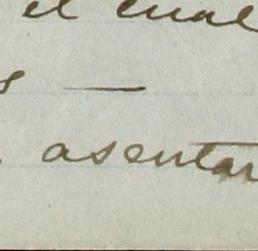 el cual
s —
asentar